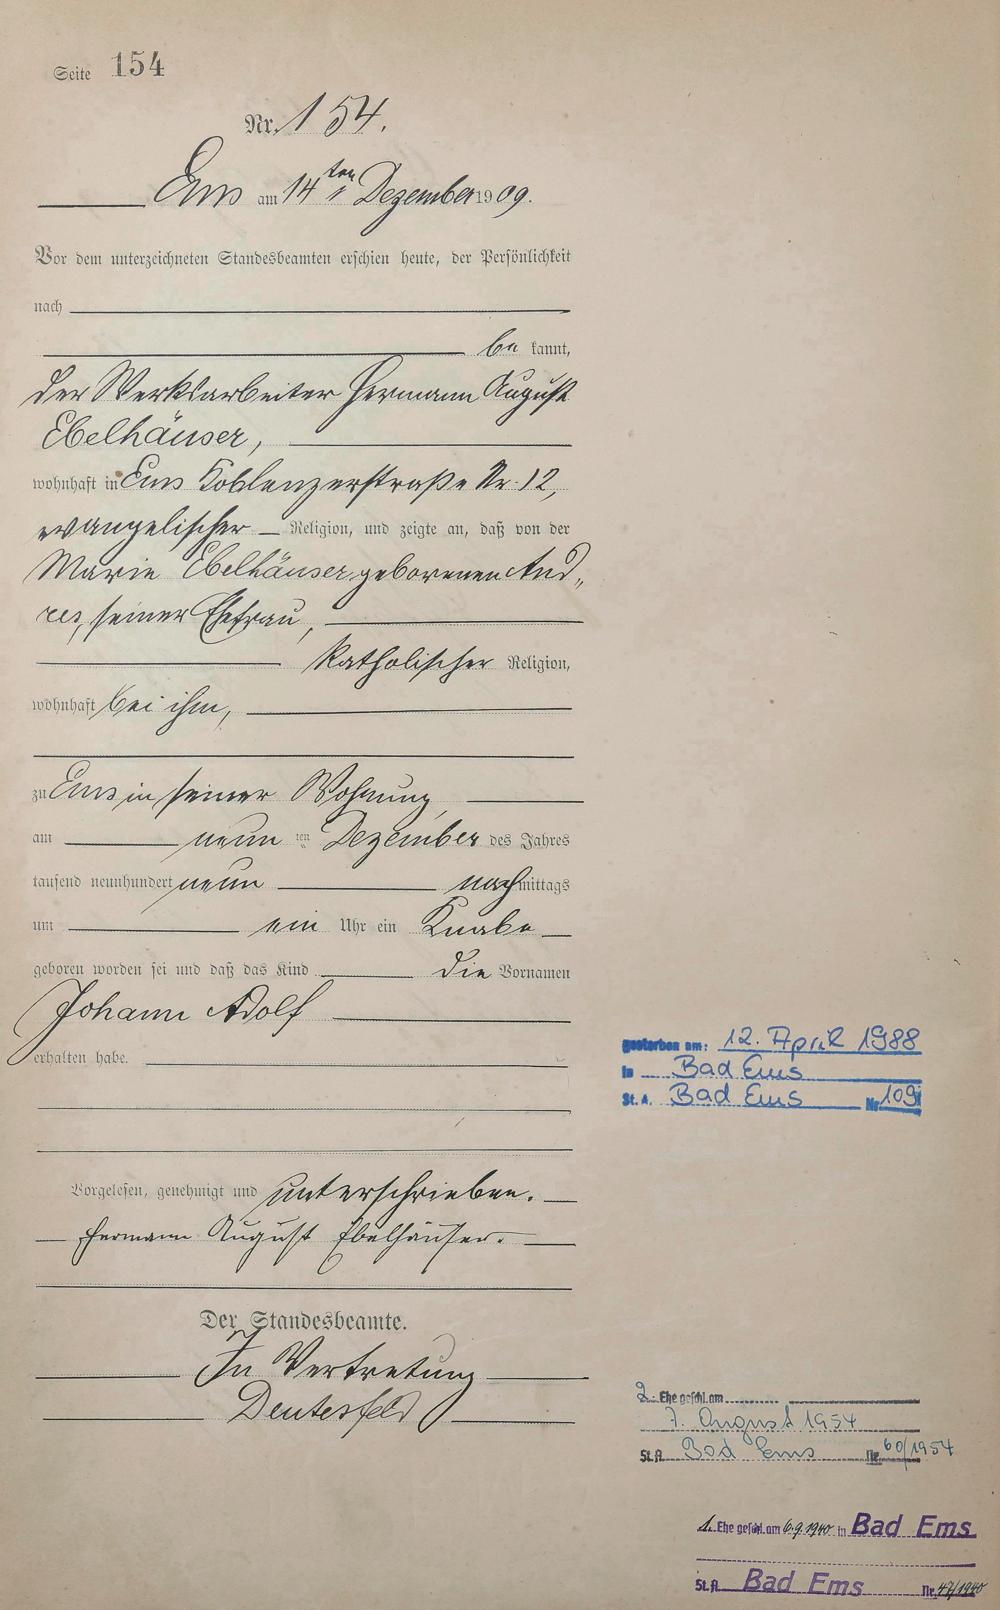 Seite 154
Nr. 154.
Ems am 14ten Dezember 1909.
Vor dem unterzeichneten Standesbeamten erschien heute, der Persönlichkeit
nach
be kannt,
der Werksarbeiter Hermann August
Ebelhäuser,
wohnhaft in Ems Koblenzerstraße Nr. 12,
evangelischer Religion, und zeigte an, daß von der
Marie Ebelhäuser geborenen And„
res, seiner Ehefrau,
katholischer Religion,
wohnhaft bei ihm,
zu Ems in seiner Wohnung,
am neun ten Dezember des Jahres
tausend neunhundert neun nachmittags
um ein Uhr ein Knabe
geboren worden sei und daß das Kind die Vornamen
Johann Adolf
erhalten habe.
Vorgelesen, genehmigt und unterschrieben.
Hermann August Ebelhäuser.
Der Standesbeamte.
In Vertretung
Deutesfeld
gestorben am: 12. April 1988
in Bad Ems
St. A. Bad Ems Nr. 109
2. Ehe geschl. am
7. August 1954
St. A. Bad Ems Nr. 60/1954
1. Ehe geschl. am 6.9.1940 in Bad Ems
St. A. Bad Ems Nr. 47/1940